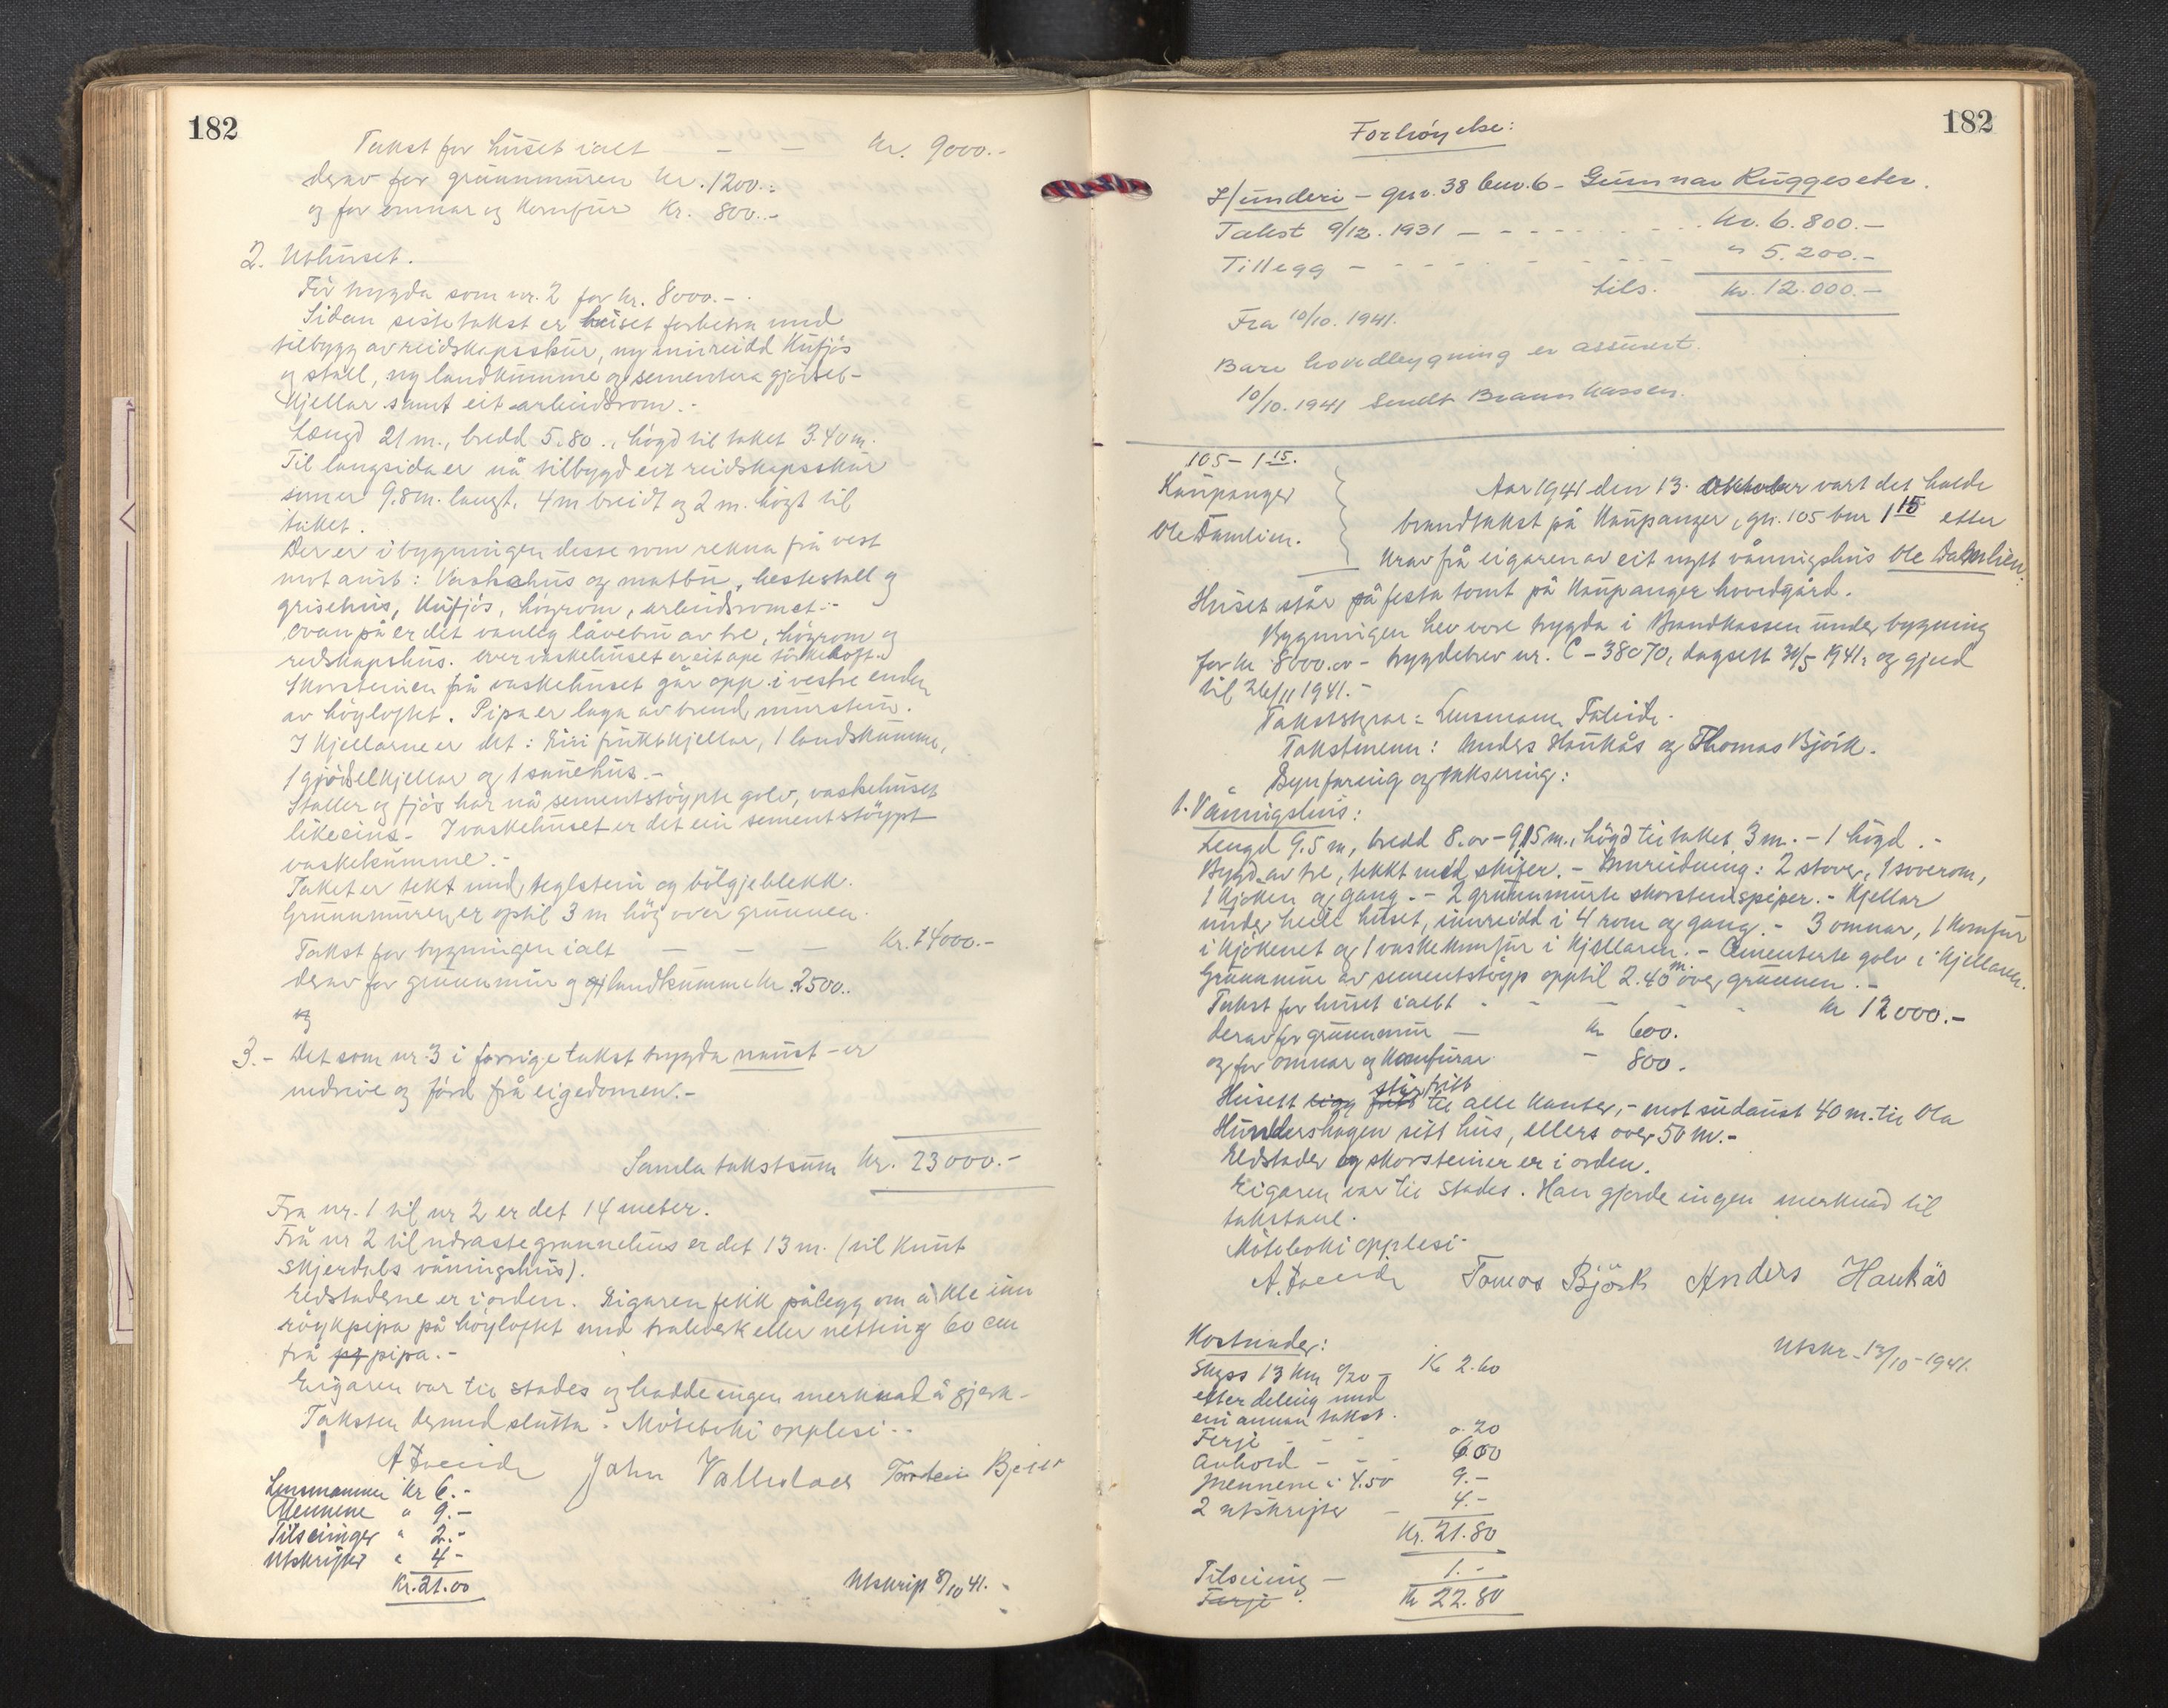 182
Takst for huset ialt — — Kr. 9000.-
derav for grunnmuren Kr. 1200.-
og for omnar og komfur Kr. 800.-
2. Uthuset.
Før trygda som nr. 2 for kr. 8000.-
Sidan siste takst er huset forbetra med
tilbygg av reidskapsskur, ny innreidd kufjøs
og stall, ny landkumme og sementera gjødsel-
kjellar samt eit arbeidsrom.-
Længd 21 m., bredd 5.80., høgd til taket 3.40 m.
Til langsida er nå tilbygd eit reidskapsskur
som er 9.8 m. langt, 4 m breidt og 2 m. høgt til
taket.
Der er i bygningen desse rom rekna frå vest
mot aust: Vaskehus og matbu, hestestall og
grisehus, kufjøs, høyrom, arbeidsromet.-
Ovanpå er det vanleg låvebru av tre, høyrom og
redskapshus. Over vaskehuset er eit ope tørkeloft.
Skorsteinen frå vaskehuset går opp i vestre enden
av høyloftet. Pipa er laga av brend murstein.
I kjellarne er det: Ein fruktkjellar, 1 landkumme,
1 gjødselkjellar og 1 sauehus.-
Stallen og fjøs har nå sementstøypte golv, vaskehuset
likeeins.- I vaskehuset er det ein sementstøypt
vaskekumme.-
Taket er tekt med teglstein og bølgjeblekk.
Grunnmuren er optil 3 m høg over grunnen.
Takst for bygningen ialt — — — Kr. 14000.-
derav for grunnmur og landkumme Kr. 2500..
og
3.- Det som nr. 3 i forrige takst trygda naust - er
nedrive og førd frå eigedomen.-
Samla takstsum Kr. 23000.-
Fra nr. 1 til nr 2 er det 14 meter.
Frå nr 2 til næraste grannehus er det 13 m. (til Knut
Skjerdals våningshus).
Eldstaderne er i orden. Eigaren fekk pålegg om å kle inn
røykpipa på høyloftet med tralverk eller netting 60 cm
frå pipa.-
Eigaren var til stades og hadde ingen merknad å gjera.-
Taksten dermed slutta.- Møteboki opplesi.-
A Tveide John Valledal Torstein Bjeire
Lensmannen Kr 6.-
Mennene " 9.-
Tilseiinger " 2.-
Utskrifter " 4-
Kr. 21.00
Utskrip 8/10 41.
182
Forhöyelse:
Hunderi - gnr. 38 bnr. 6 - Gunnar Ruggeseter.
Takst 9/12. 1931 — - - - - - Kr. 6.800.—
Tillegg - - - - - - " 5.200.—
tils. Kr. 12.000.—
Fra 10/10. 1941.
Bare hovedbygning er assurert.
10/10. 1941 Sendt Brannkassen.
105 - 1 15.
Kaupanger
Ole Damlien.
Aar 1941 den 13. oktober vart det halde
brandtakst på Kaupanger, gnr. 105 bnr 1 15 etter
krav frå eigaren av eit nytt våningshus Ole Damlien.
Huset står på festa tomt på Kaupanger hovedgård.
Bygningen hev vore trygda i Brandkassen under bygning
for kr 8000.00 - trygdebrev nr. C-38070, dagsett 31/5 1941, og gjeld
til 26/11 1941.-
Takststyrar: Lensmann Tveide.
Takstmenn: Anders Haukås og Thomas Björk.
Synfaring og taksering:
1. Våningshus:
Lengd 9.5 m, bredd 8.00 - 9,15 m., høgd til taket 3 m. - 1 høgd.-
Bygd av tre, tekkt med skifer. - Innreidning: 2 stover, 1 soverom,
1 kjøken og gang.- 2 grunnmurte skorsteinspiper.- Kjellar
under heile huset, innreidd i 4 rom og gang.- 3 omnar, 1 komfur
i kjøkenet og 1 vaskekomfur i kjellaren.- Cementerte golv i kjellaren.
Grunnmur av sementstøyp opptil 2.40 m. over grunnen.-
Takst for huset ialt - - - - Kr 12000.-
derav for grunnmur — Kr 600.
og for omnar og komfurar - 800.
Husett ligg fritt står fritt til alle kanter,- mot sudaust 40 m. til Ola
Hundershagen sitt hus, ellers over 50 m.-
Eldstader og skorsteiner er i orden.
Eigaren var til stades. Han gjorde ingen merknad til
takstane.
Møteboki opplesi.
A. Tveide Tomas Björk Anders Haukås
Kostnader:
Skyss 13 km 0/20 - Kr 2.60
etter deling med
ein annan takst.
Ferje - - - 0.20
Avhold - - - 6.00
Mennene á 4.50 9.-
2 utskrifter - 4.-
Kr. 21.80
Tilseiing — 1.-
Ferje
Kr 22.80
Utskr. 13/10-1941.